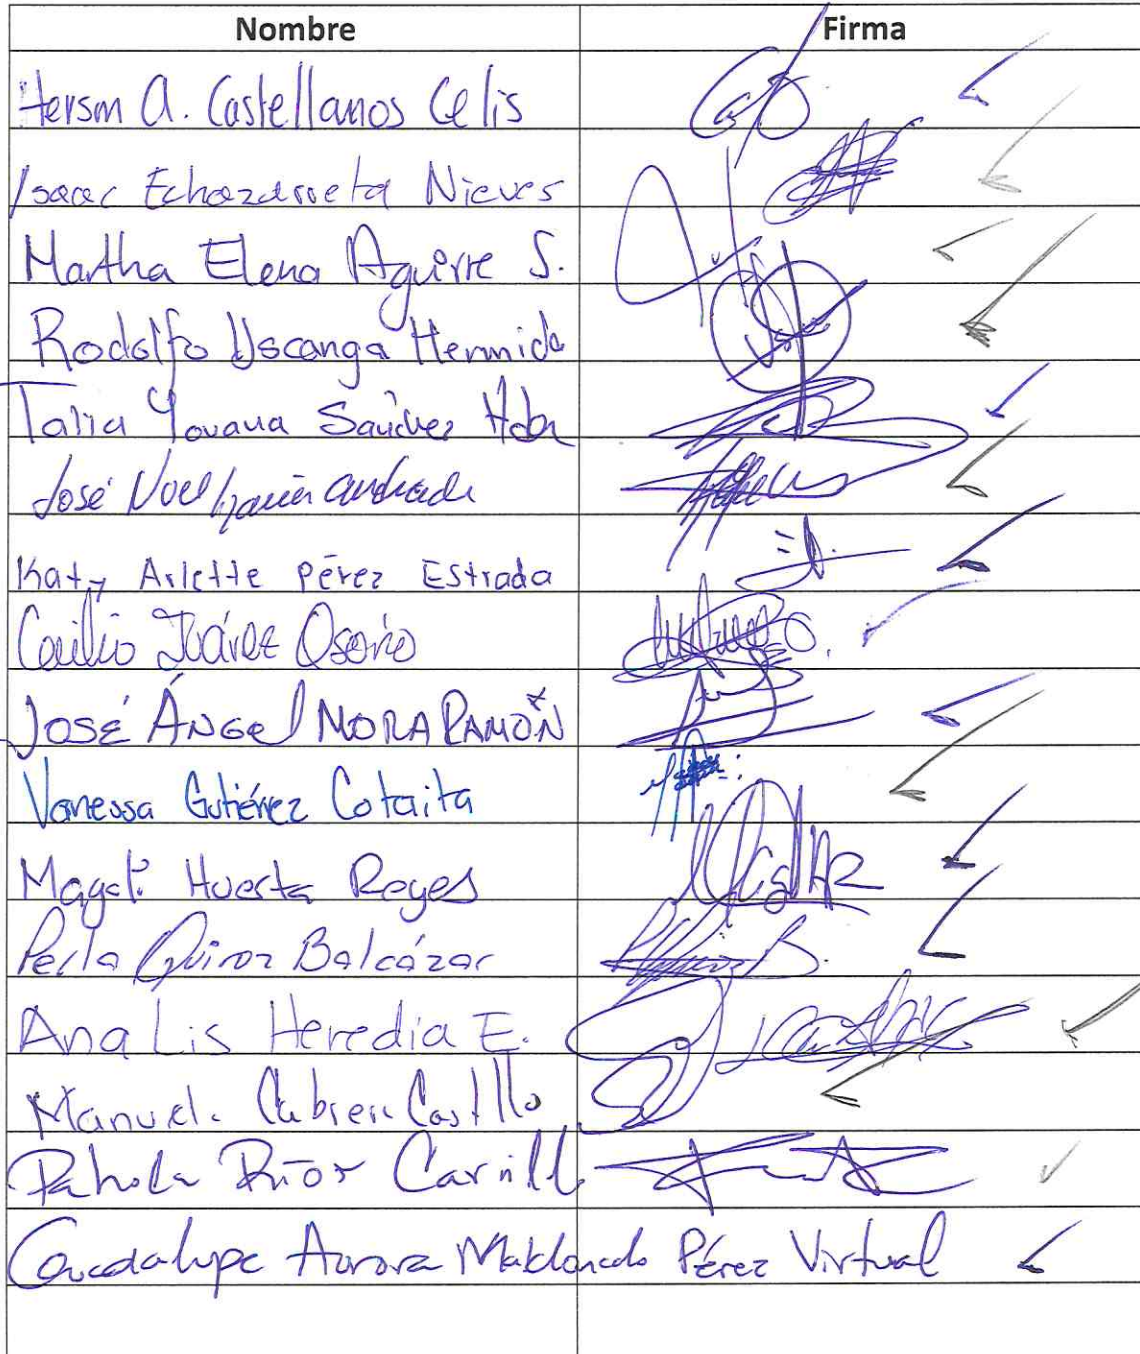 Nombre Firma
Herson A. Castellanos Celis
Isaac Echazarreta Nieves
Martha Elena Aguirre S.
Rodolfo Uscanga Hermida
Talia Yovana Sánchez Hdz
José Noel Garcia Andrade
Katy Arlette Pérez Estrada
Juárez Osorio
JOSÉ ÁNGEL MORA RAMÓN
Vanessa Gutiérrez Cotaita
Magali Huerta Reyes
Perla Quiroz Balcázar
Ana Lis Heredia E.
Manuel Cabrera Castillo
Ríos Carrillo
Guadalupe Aurora Maldonado Pérez Virtual